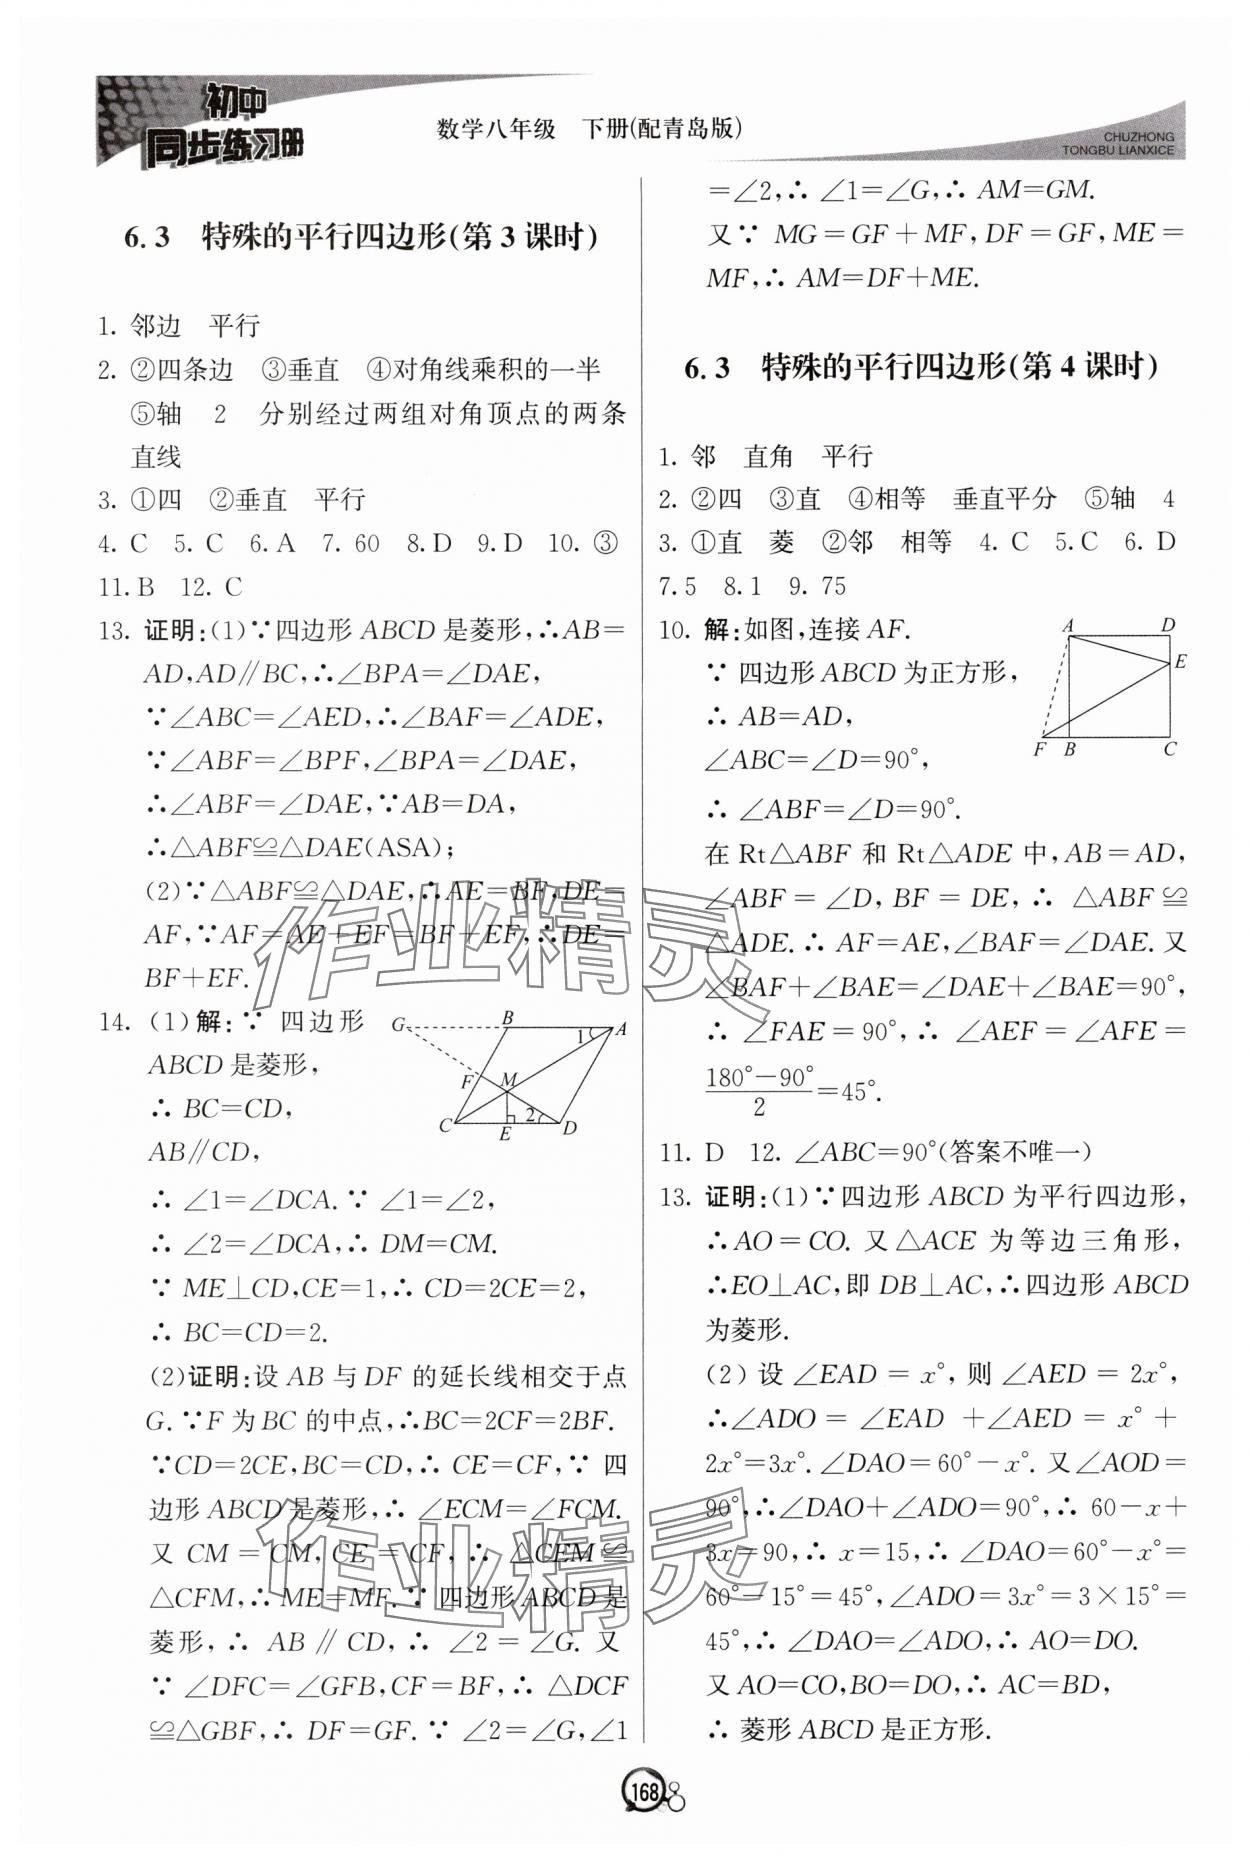 初中
同步练习册
数学八年级 下册(配青岛版)
CHUZHONG
TONGBU LIANXICE
6.3 特殊的平行四边形(第3课时)
1. 邻边 平行
2. ②四条边 ③垂直 ④对角线乘积的一半
⑤轴 2 分别经过两组对角顶点的两条
直线
3. ①四 ②垂直 平行
4. C 5. C 6. A 7. 60 8. D 9. D 10. ③
11. B 12. C
13. 证明:(1)∵四边形ABCD是菱形,∴AB=
AD,AD∥BC,∴∠BPA=∠DAE,
∵∠ABC=∠AED,∴∠BAF=∠ADE,
∵∠ABF=∠BPF,∠BPA=∠DAE,
∴∠ABF=∠DAE,∵AB=DA,
∴△ABF≌△DAE(ASA);
(2)∵△ABF≌△DAE,∴AE=BF,DE=
AF,∵AF=AE+EF=BF+EF,∴DE=
BF+EF.
14. (1)解:∵ 四边形
ABCD是菱形,
∴ BC=CD,
AB∥CD,
G B A 1 F M C E 2 D
∴ ∠1=∠DCA. ∵ ∠1=∠2,
∴ ∠2=∠DCA,∴ DM=CM.
∵ ME⊥CD,CE=1,∴ CD=2CE=2,
∴ BC=CD=2.
(2)证明:设 AB 与 DF 的延长线相交于点
G. ∵F 为 BC 的中点,∴BC=2CF=2BF.
∵CD=2CE,BC=CD,∴ CE=CF,∵ 四
边形ABCD是菱形,∴ ∠ECM=∠FCM.
又 CM = CM, CE = CF, ∴ △CEM ≌
△CFM,∴ ME=MF. ∵ 四边形ABCD是
菱形,∴ AB∥CD,∴ ∠2=∠G. 又
∵ ∠DFC=∠GFB,CF=BF,∴ △DCF
≌△GBF,∴ DF=GF. ∵ ∠2=∠G,∠1
=∠2,∴ ∠1=∠G,∴ AM=GM.
又∵ MG=GF+MF,DF=GF,ME=
MF,∴ AM=DF+ME.
6.3 特殊的平行四边形(第4课时)
1. 邻 直角 平行
2. ②四 ③直 ④相等 垂直平分 ⑤轴 4
3. ①直 菱 ②邻 相等 4. C 5. C 6. D
7. 5 8. 1 9. 75
10. 解:如图,连接AF.
∵ 四边形ABCD为正方形,
∴ AB=AD,
∠ABC=∠D=90°,
A D E F B C
∴ ∠ABF=∠D=90°.
在Rt△ABF 和 Rt△ADE 中,AB=AD,
∠ABF = ∠D, BF = DE, ∴ △ABF ≌
△ADE. ∴ AF=AE,∠BAF=∠DAE. 又
∠BAF+∠BAE=∠DAE+∠BAE=90°,
∴ ∠FAE = 90°, ∴ ∠AEF = ∠AFE =
(180°−90°)/2=45°.
11. D 12. ∠ABC=90°(答案不唯一)
13. 证明:(1)∵四边形 ABCD 为平行四边形,
∴AO=CO. 又△ACE 为等边三角形,
∴EO⊥AC,即DB⊥AC,∴四边形ABCD
为菱形.
(2) 设 ∠EAD = x°, 则 ∠AED = 2x°,
∴∠ADO = ∠EAD +∠AED = x° +
2x°=3x°. ∠DAO=60°−x°. 又∠AOD=
90°,∴∠DAO+∠ADO=90°,∴ 60−x+
3x=90,∴ x=15,∴ ∠DAO=60°−x°=
60°−15°=45°,∠ADO=3x°=3×15°=
45°,∴ ∠DAO=∠ADO,∴ AO=DO.
又AO=CO,BO=DO,∴ AC=BD,
∴ 菱形ABCD是正方形.
作业精灵
作业精灵
168